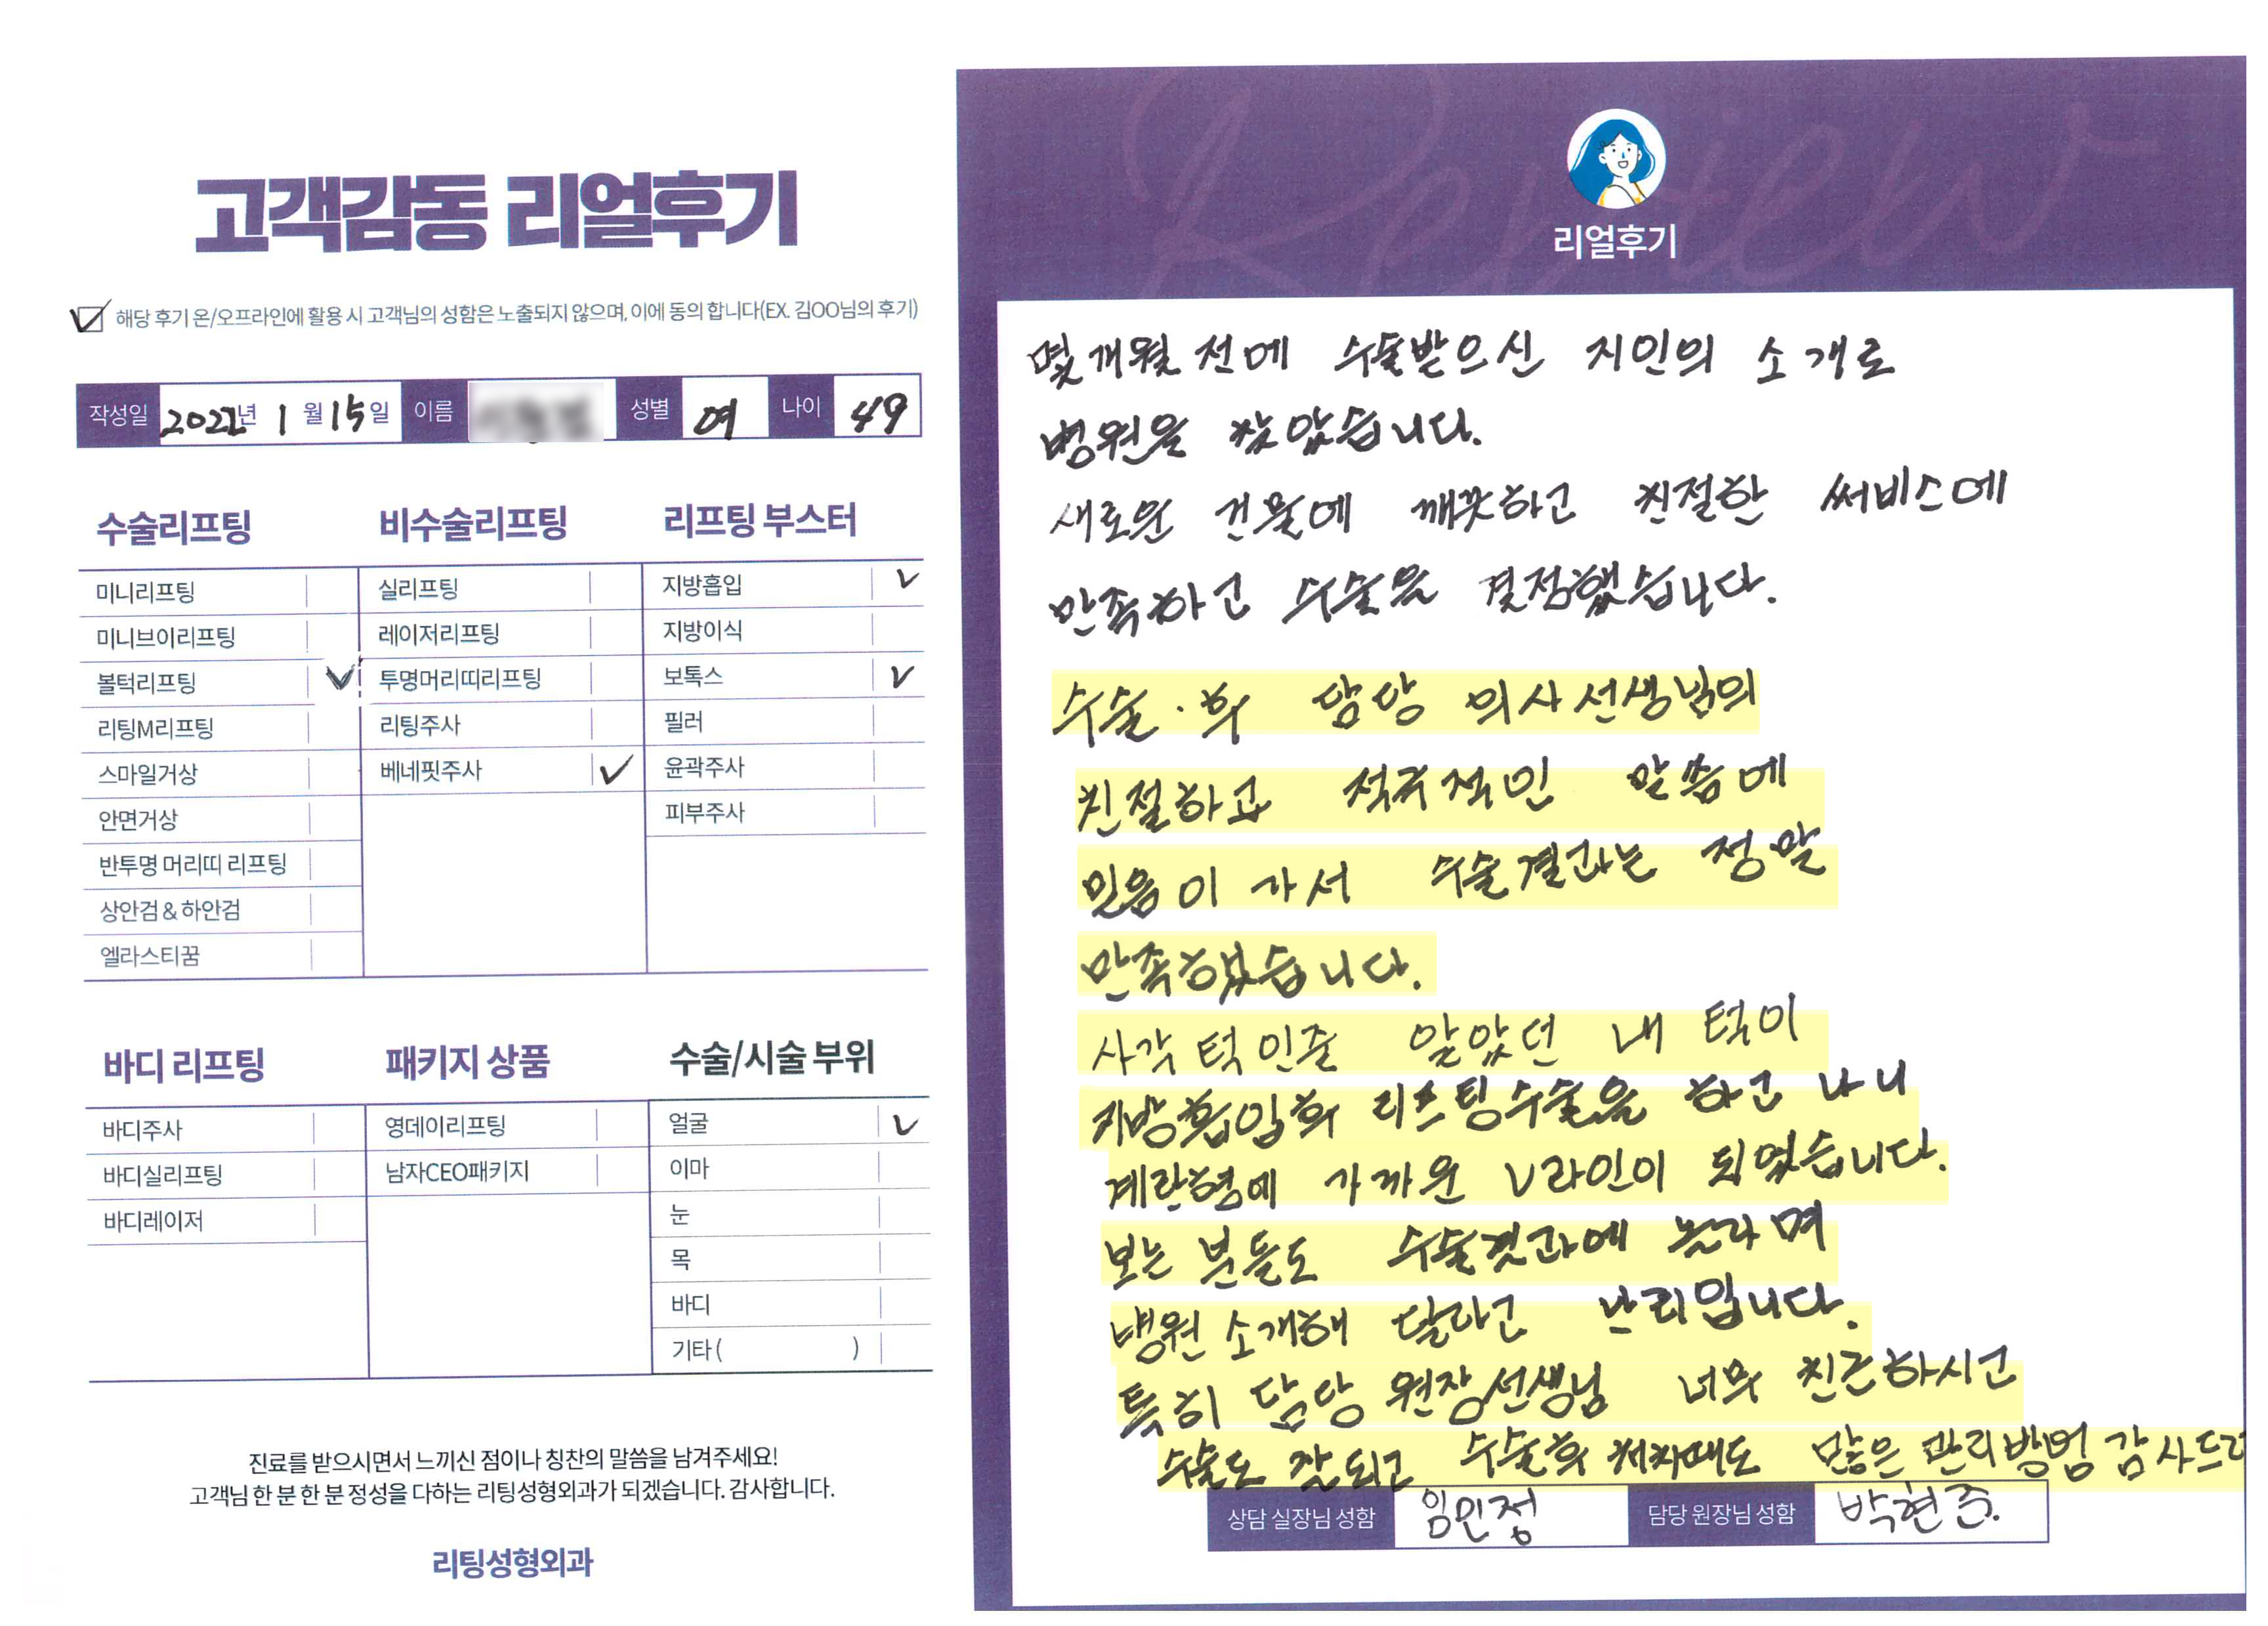 고객감동 리얼후기
해당 후기 온/오프라인에 활용 시 고객님의 성함은 노출되지 않으며, 이에 동의 합니다(EX. 김OO님의 후기)
작성일 2022년 1월 15일 이름 성별 여 나이 49
수술리프팅
미니리프팅
미니브이리프팅
볼턱리프팅
리팅M리프팅
스마일거상
안면거상
반투명 머리띠 리프팅
상안검 & 하안검
엘라스티꿈
비수술리프팅
실리프팅
레이저리프팅
투명머리띠리프팅
리팅주사
베네핏주사
리프팅 부스터
지방흡입
지방이식
보톡스
필러
윤곽주사
피부주사
바디 리프팅
바디주사
바디실리프팅
바디레이저
패키지 상품
영데이리프팅
남자CEO패키지
수술/시술 부위
얼굴
이마
눈
목
바디
기타( )
진료를 받으시면서 느끼신 점이나 칭찬의 말씀을 남겨주세요!
고객님 한 분 한 분 정성을 다하는 리팅성형외과가 되겠습니다. 감사합니다.
리팅성형외과
Review
리얼후기
몇개월 전에 수술받으신 지인의 소개로
병원을 찾았습니다.
새로운 건물에 깨끗하고 친절한 써비스에
만족하고 수술을 결정했습니다.
수술.후 담당 의사선생님의
친절하고 적극적인 말씀에
믿음이 가서 수술결과는 정말
만족했습니다.
사각턱인줄 알았던 내 턱이
지방흡입후 리프팅수술을 하고 나니
계란형에 가까운 V라인이 되었습니다.
보는 분들도 수술결과에 놀라며
병원 소개해 달라고 난리입니다.
특히 담당 원장선생님 너무 친근하시고
수술도 잘 되고 수술후 처치때도 많은 관리방법 감사드리
상담 실장님 성함 임민정 담당 원장님 성함 박현준.